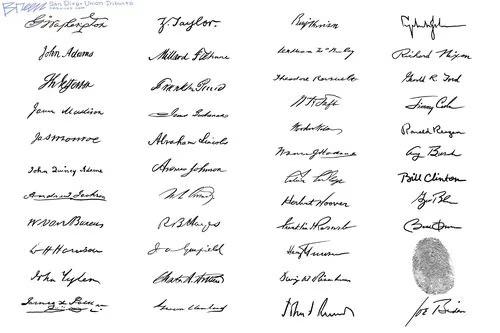 BREEN San Diego Union Tribune
G Washington
John Adams
Th Jefferson
James Madison
James Monroe
John Quincy Adams
Andrew Jackson
M Van Buren
W H Harrison
John Tyler
James K Polk
Z. Taylor.
Millard Fillmore
Franklin Pierce
James Buchanan
Abraham Lincoln
Andrew Johnson
U.S. Grant
R B Hayes
J A Garfield
Chester A. Arthur
Grover Cleveland
Benj Harrison
William McKinley
Theodore Roosevelt
Wm H Taft
Woodrow Wilson
Warren G Harding
Calvin Coolidge
Herbert Hoover
Franklin D Roosevelt
Harry Truman
Dwight D Eisenhower
John F Kennedy
Lyndon B Johnson
Richard Nixon
Gerald R. Ford
Jimmy Carter
Ronald Reagan
G Bush
Bill Clinton
G Bush
Barack Obama
Joe Biden